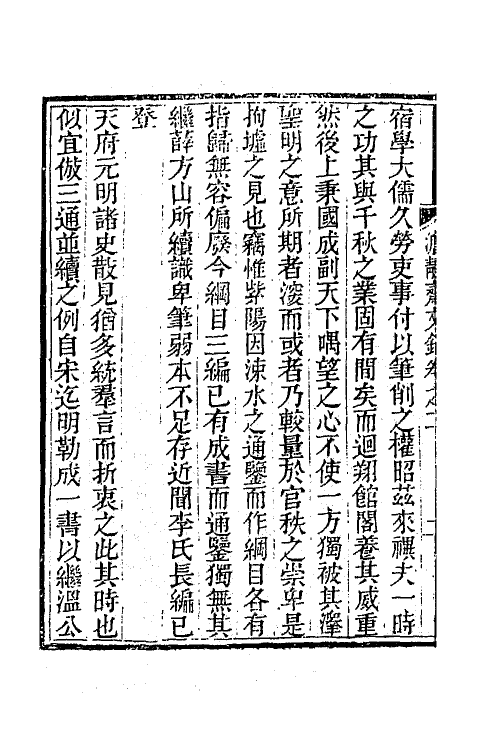 宿學大儒久勞吏事付以筆削之權昭茲來禩夫一時
之功其與千秋之業固有間矣而迴翔館閣養其威重
然後上秉國成副天下喁望之心不使一方獨被其澤
聖明之意所期者深而或者乃較量於官秩之崇卑是
拘墟之見也竊惟紫陽因涑水之通鑒而作綱目各有
指歸無容偏廢今綱目三編已有成書而通鑒獨無其
繼薛方山所續識卑筆弱本不足存近聞李氏長編已
登
天府元明諸史散見猶多統羣言而折衷之此其時也
似宜倣三通並續之例自宋迄明勒成一書以繼溫公